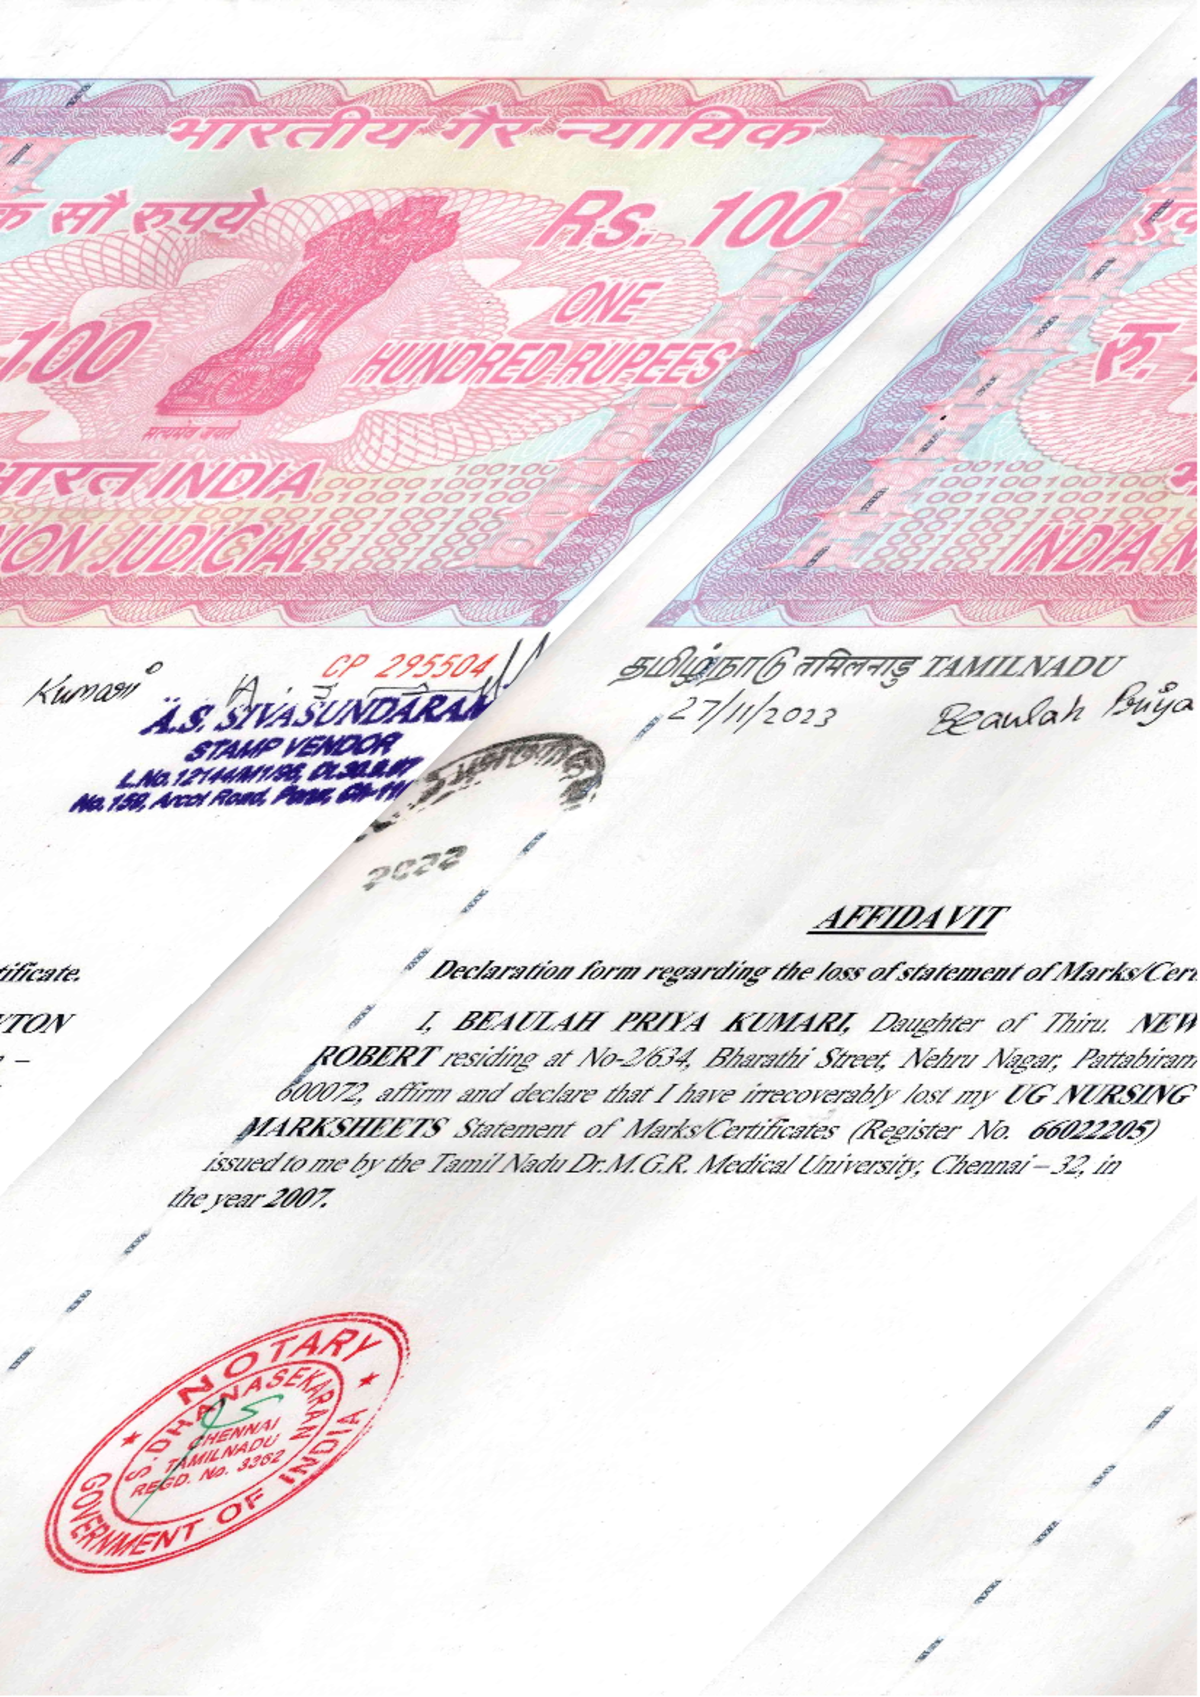 भारतीय गैर न्यायिक
एक
क सौ रुपये
Rs. 100
रु.
100
ONE
HUNDRED RUPEES
सत्यमेव जयते
भारत INDIA
INDIA N
NON JUDICIAL
தமிழ்நாடு तमिलनाडु TAMILNADU
CP 295504
27/11/2023
Beaulah Priya
Kumari
A.S. SIVASUNDARAM
STAMP VENDOR
L.No.12144/M1/96, Dt.30.9.97
No.159, Arcot Road, Porur, Ch-116
2022
AFFIDAVIT
Declaration form regarding the loss of statement of Marks/Cert
tificate.
I, BEAULAH PRIYA KUMARI, Daughter of Thiru. NEW
VTON
ROBERT residing at No-2/634, Bharathi Street, Nehru Nagar, Pattabiram
–
600072, affirm and declare that I have irrecoverably lost my UG NURSING
MARKSHEETS Statement of Marks/Certificates (Register No. 66022205)
issued to me by the Tamil Nadu Dr.M.G.R. Medical University, Chennai – 32, in
the year 2007.
NOTARY
S. DHANASEKARAN
CHENNAI
TAMILNADU
REGD. No. 3362
GOVERNMENT OF INDIA